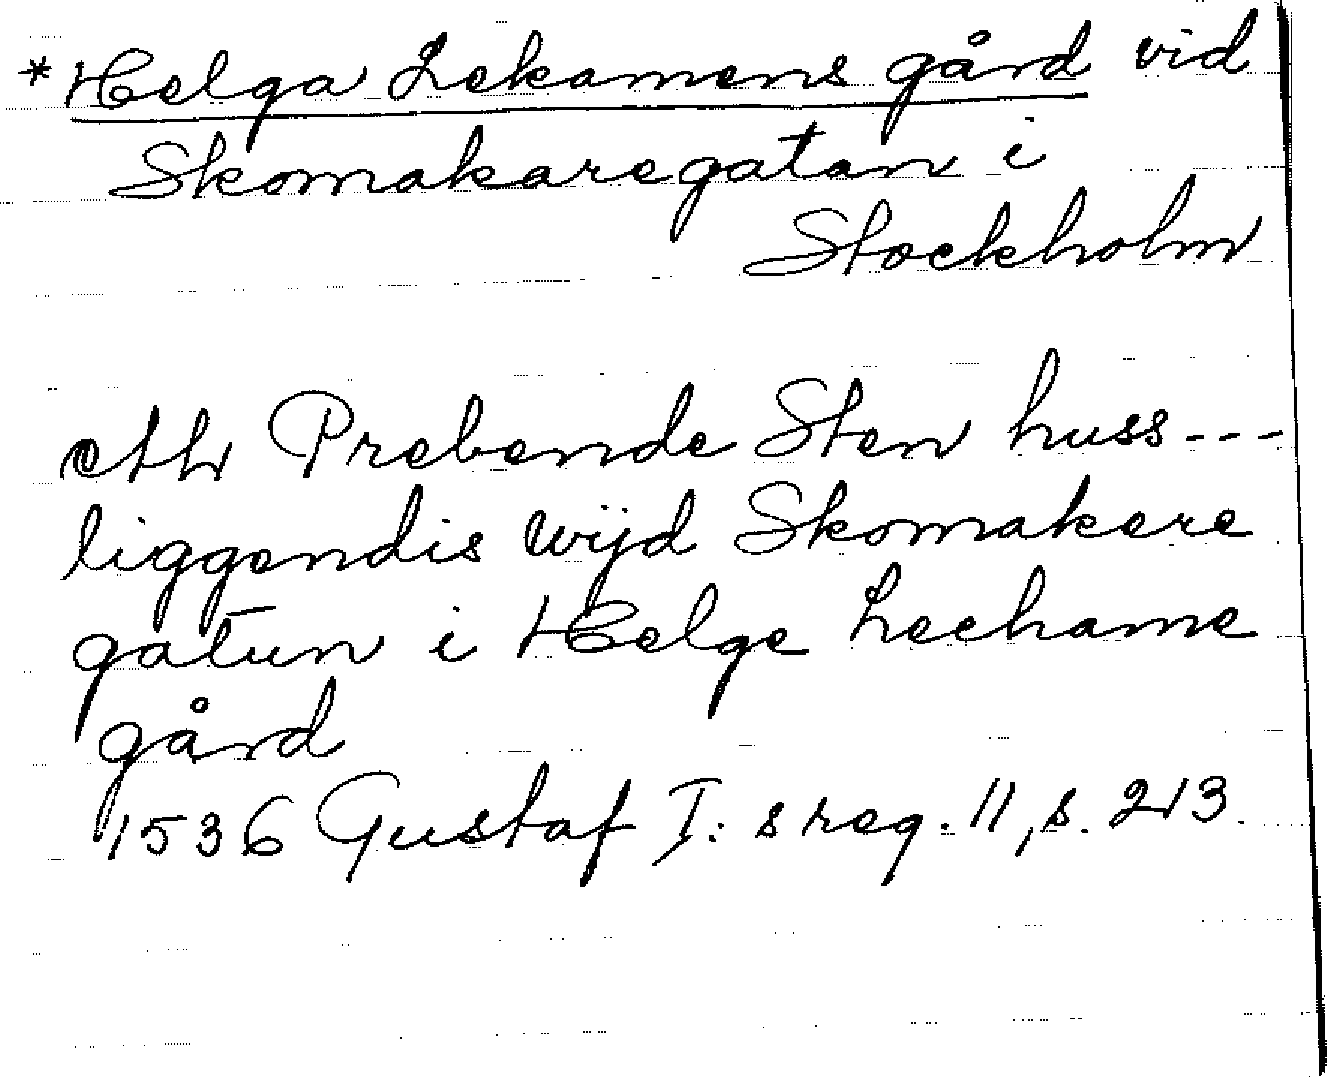 * Helga Lekamens gård vid
Skomakaregatan i
Stockholm
eth Prebende Sten huss---
liggendis wijd Skomakere
gatun i Helge Leehame
gård
1536 Gustaf I: s reg. 11, s. 213.